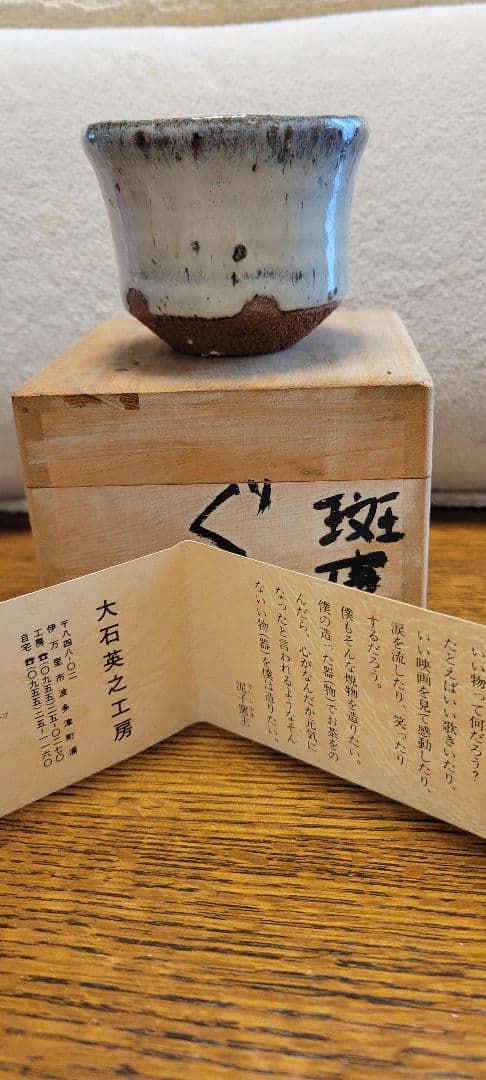 斑唐
ぐ
いい物って何だろう?
たとえばいい歌きいたり、
いい映画を見て感動したり、
涙を流したり、笑ったり
するだろう。
僕もそんな焼物を造りたい。
僕の造った器(物)でお茶をの
んだら、心がなんだか元気に
なったと言われるようなそん
ないい物(器)を僕は造りたい。
泥子窯主
大石英之工房
〒八四八-〇二
伊万里市波多津町浦
工房☎(〇九五五)二五-〇二七〇
自宅☎(〇九五五)二五-一一六〇